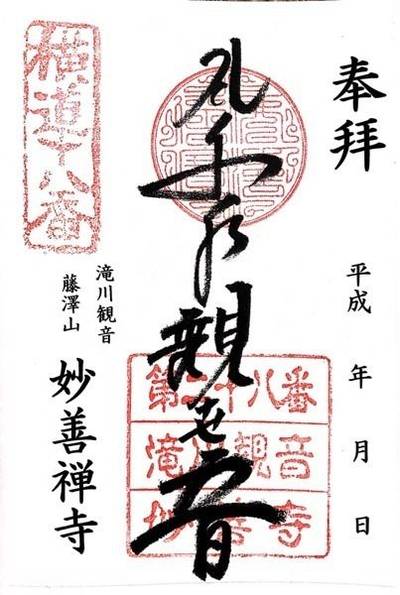 奉拝
平成 年 月 日
千手觀世音
第二十八番
滝川観音
妙善寺
横道十八番
滝川観音
藤澤山
妙善禅寺